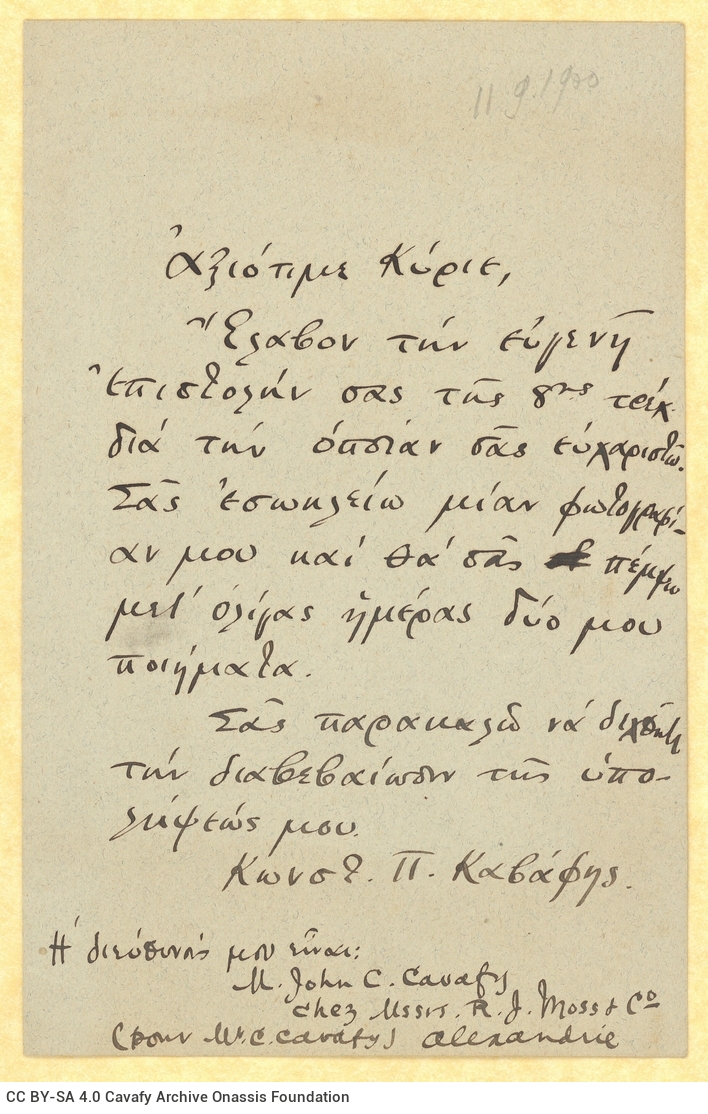 11 9. 1900
Ἀξιότιμε Κύριε,
Ἔλαβον τήν εὐγενῆ
ἐπιστολήν σας τῆς 8ης τρέχ.
διά τήν ὁποίαν σᾶς εὐχαριστῶ.
Σᾶς ἐσωκλείω μίαν φωτογραφί-
αν μου καί θά σᾶς πέμψω
μετ' ὀλίγας ἡμέρας δύο μου
ποιήματα.
Σᾶς παρακαλῶ νά δεχθῆτε
τήν διαβεβαίωσιν τῆς ὑπο-
λήψεώς μου.
Κωνστ. Π. Καβάφης.
Ἡ διεύθυνσίς μου εἶναι:
M. John C. Cavafy
chez Messrs. R. J. Moss & Co
(pour Mr. C. Cavafy) Alexandrie
CC BY-SA 4.0 Cavafy Archive Onassis Foundation